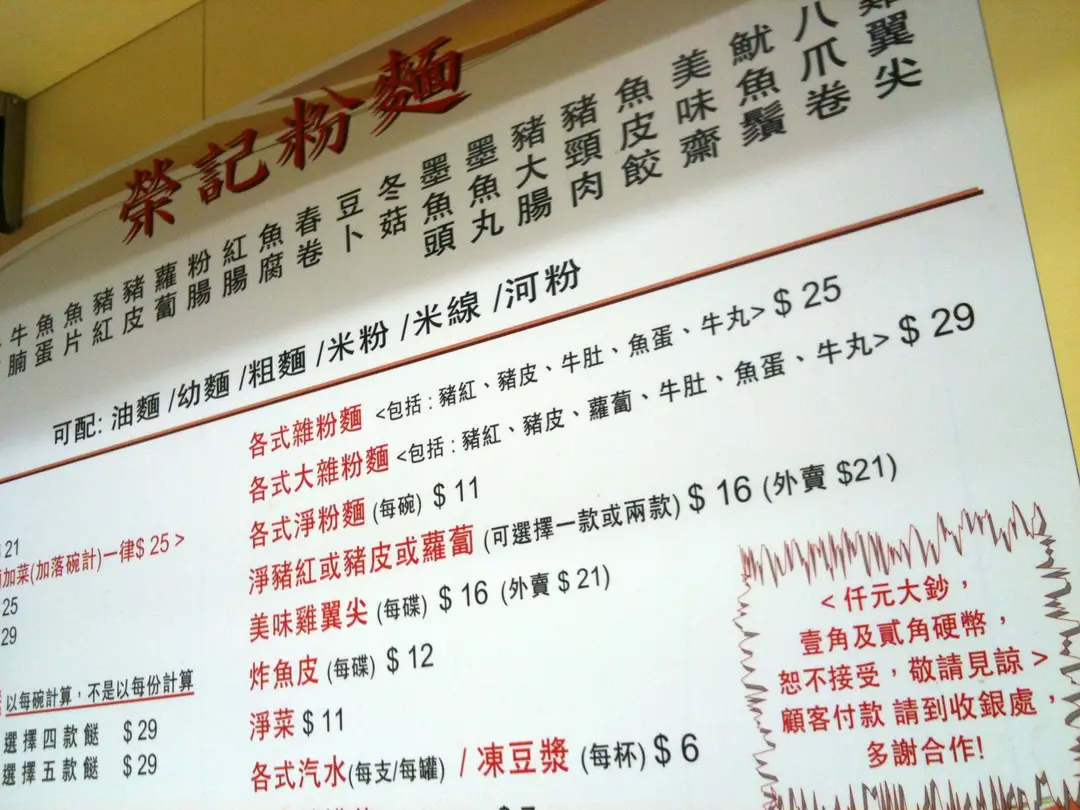 榮記粉麵
牛腩
魚蛋
魚片
豬紅
豬皮
蘿蔔
粉腸
紅腸
魚腐
春卷
豆卜
冬菇
墨魚頭
墨魚丸
豬大腸
豬頸肉
魚皮餃
美味齋
魷魚鬚
八爪卷
雞翼尖
可配: 油麵 /幼麵 /粗麵 /米粉 /米線 /河粉
各式雜粉麵 <包括 : 豬紅、豬皮、牛肚、魚蛋、牛丸> $ 25
各式大雜粉麵 <包括 : 豬紅、豬皮、蘿蔔、牛肚、魚蛋、牛丸> $ 29
各式淨粉麵 (每碗) $ 11
淨豬紅或豬皮或蘿蔔 (可選擇一款或兩款) $ 16 (外賣 $21)
美味雞翼尖 (每碟) $ 16 (外賣 $ 21)
炸魚皮 (每碟) $ 12
淨菜 $ 11
各式汽水(每支/每罐) / 凍豆漿 (每杯) $ 6
21
加菜(加落碗計)一律$ 25 >
25
29
以每碗計算，不是以每份計算
選擇四款餸 $ 29
選擇五款餸 $ 29
< 仟元大鈔，
壹角及貳角硬幣，
恕不接受，敬請見諒 >
顧客付款 請到收銀處，
多謝合作!